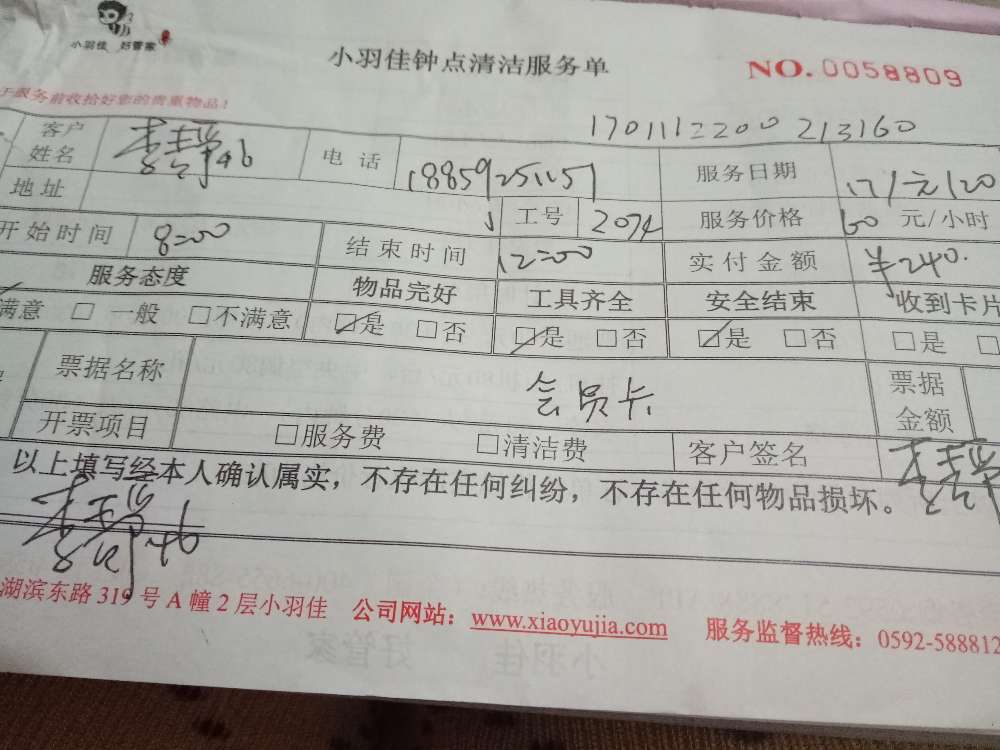 小羽佳 好管家
小羽佳钟点清洁服务单
NO.0058809
于服务前收拾好您的贵重物品!
1701112200213160
客户姓名 电话 18859251151 服务日期 17/元/20
地址 工号 2074 服务价格 60 元/小时
开始时间 8=00 结束时间 12=00 实付金额 ¥240.
服务态度 物品完好 工具齐全 安全结束 收到卡片
满意 □一般 □不满意 ☑是 □否 ☑是 □否 ☑是 □否 □是 □
票据名称 会员卡 票据金额
开票项目 □服务费 □清洁费 客户签名
以上填写经本人确认属实，不存在任何纠纷，不存在任何物品损坏。
湖滨东路 319 号 A 幢 2 层小羽佳 公司网站：www.xiaoyujia.com 服务监督热线：0592-588812